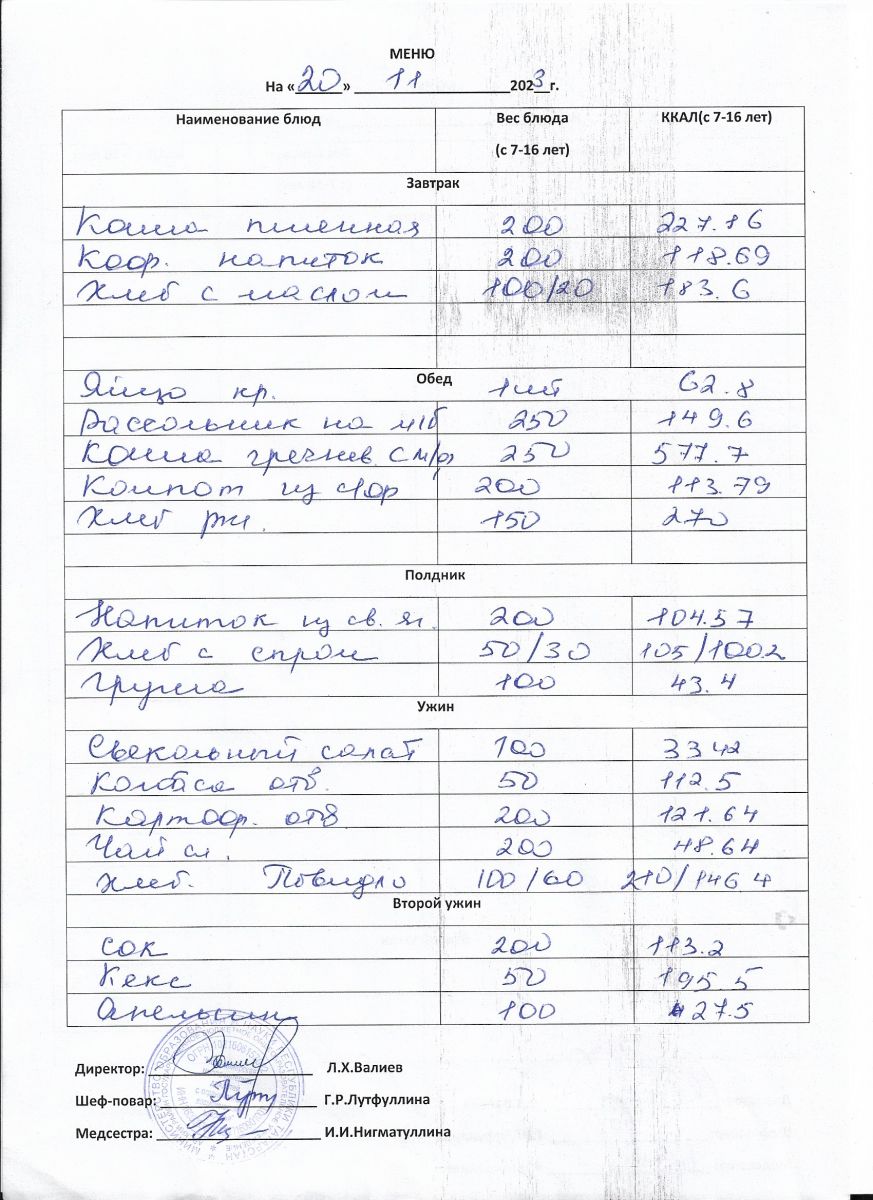 МЕНЮ
На «20» 11 2023 г.
Наименование блюд Вес блюда (с 7-16 лет) ККАЛ(с 7-16 лет)
Завтрак
Каша пшенная 200 227.16
Коф. напиток 200 118.69
Хлеб с маслом 100/20 183.6
Обед
Яйцо кр. 1шт 62.8
Рассольник на м/б 250 149.6
Каша гречнев. с м/ф 250 577.7
Компот из 200 113.79
Хлеб рж. 150 270
Полдник
Напиток из св. яг. 200 104.57
Хлеб с сыром 50/30 105/100.2
Груша 100 43.4
Ужин
Свекольный салат 100 33 42
Колбаса отв. 50 112.5
Картоф. отв 200 121.64
Чай сл. 200 48.64
Хлеб. Повидло 100/60 210/146 4
Второй ужин
Сок 200 113.2
Кекс 50 195.5
Апельсин 100 27.5
Директор: Л.Х.Валиев
Шеф-повар: Г.Р.Лутфуллина
Медсестра: И.И.Нигматуллина